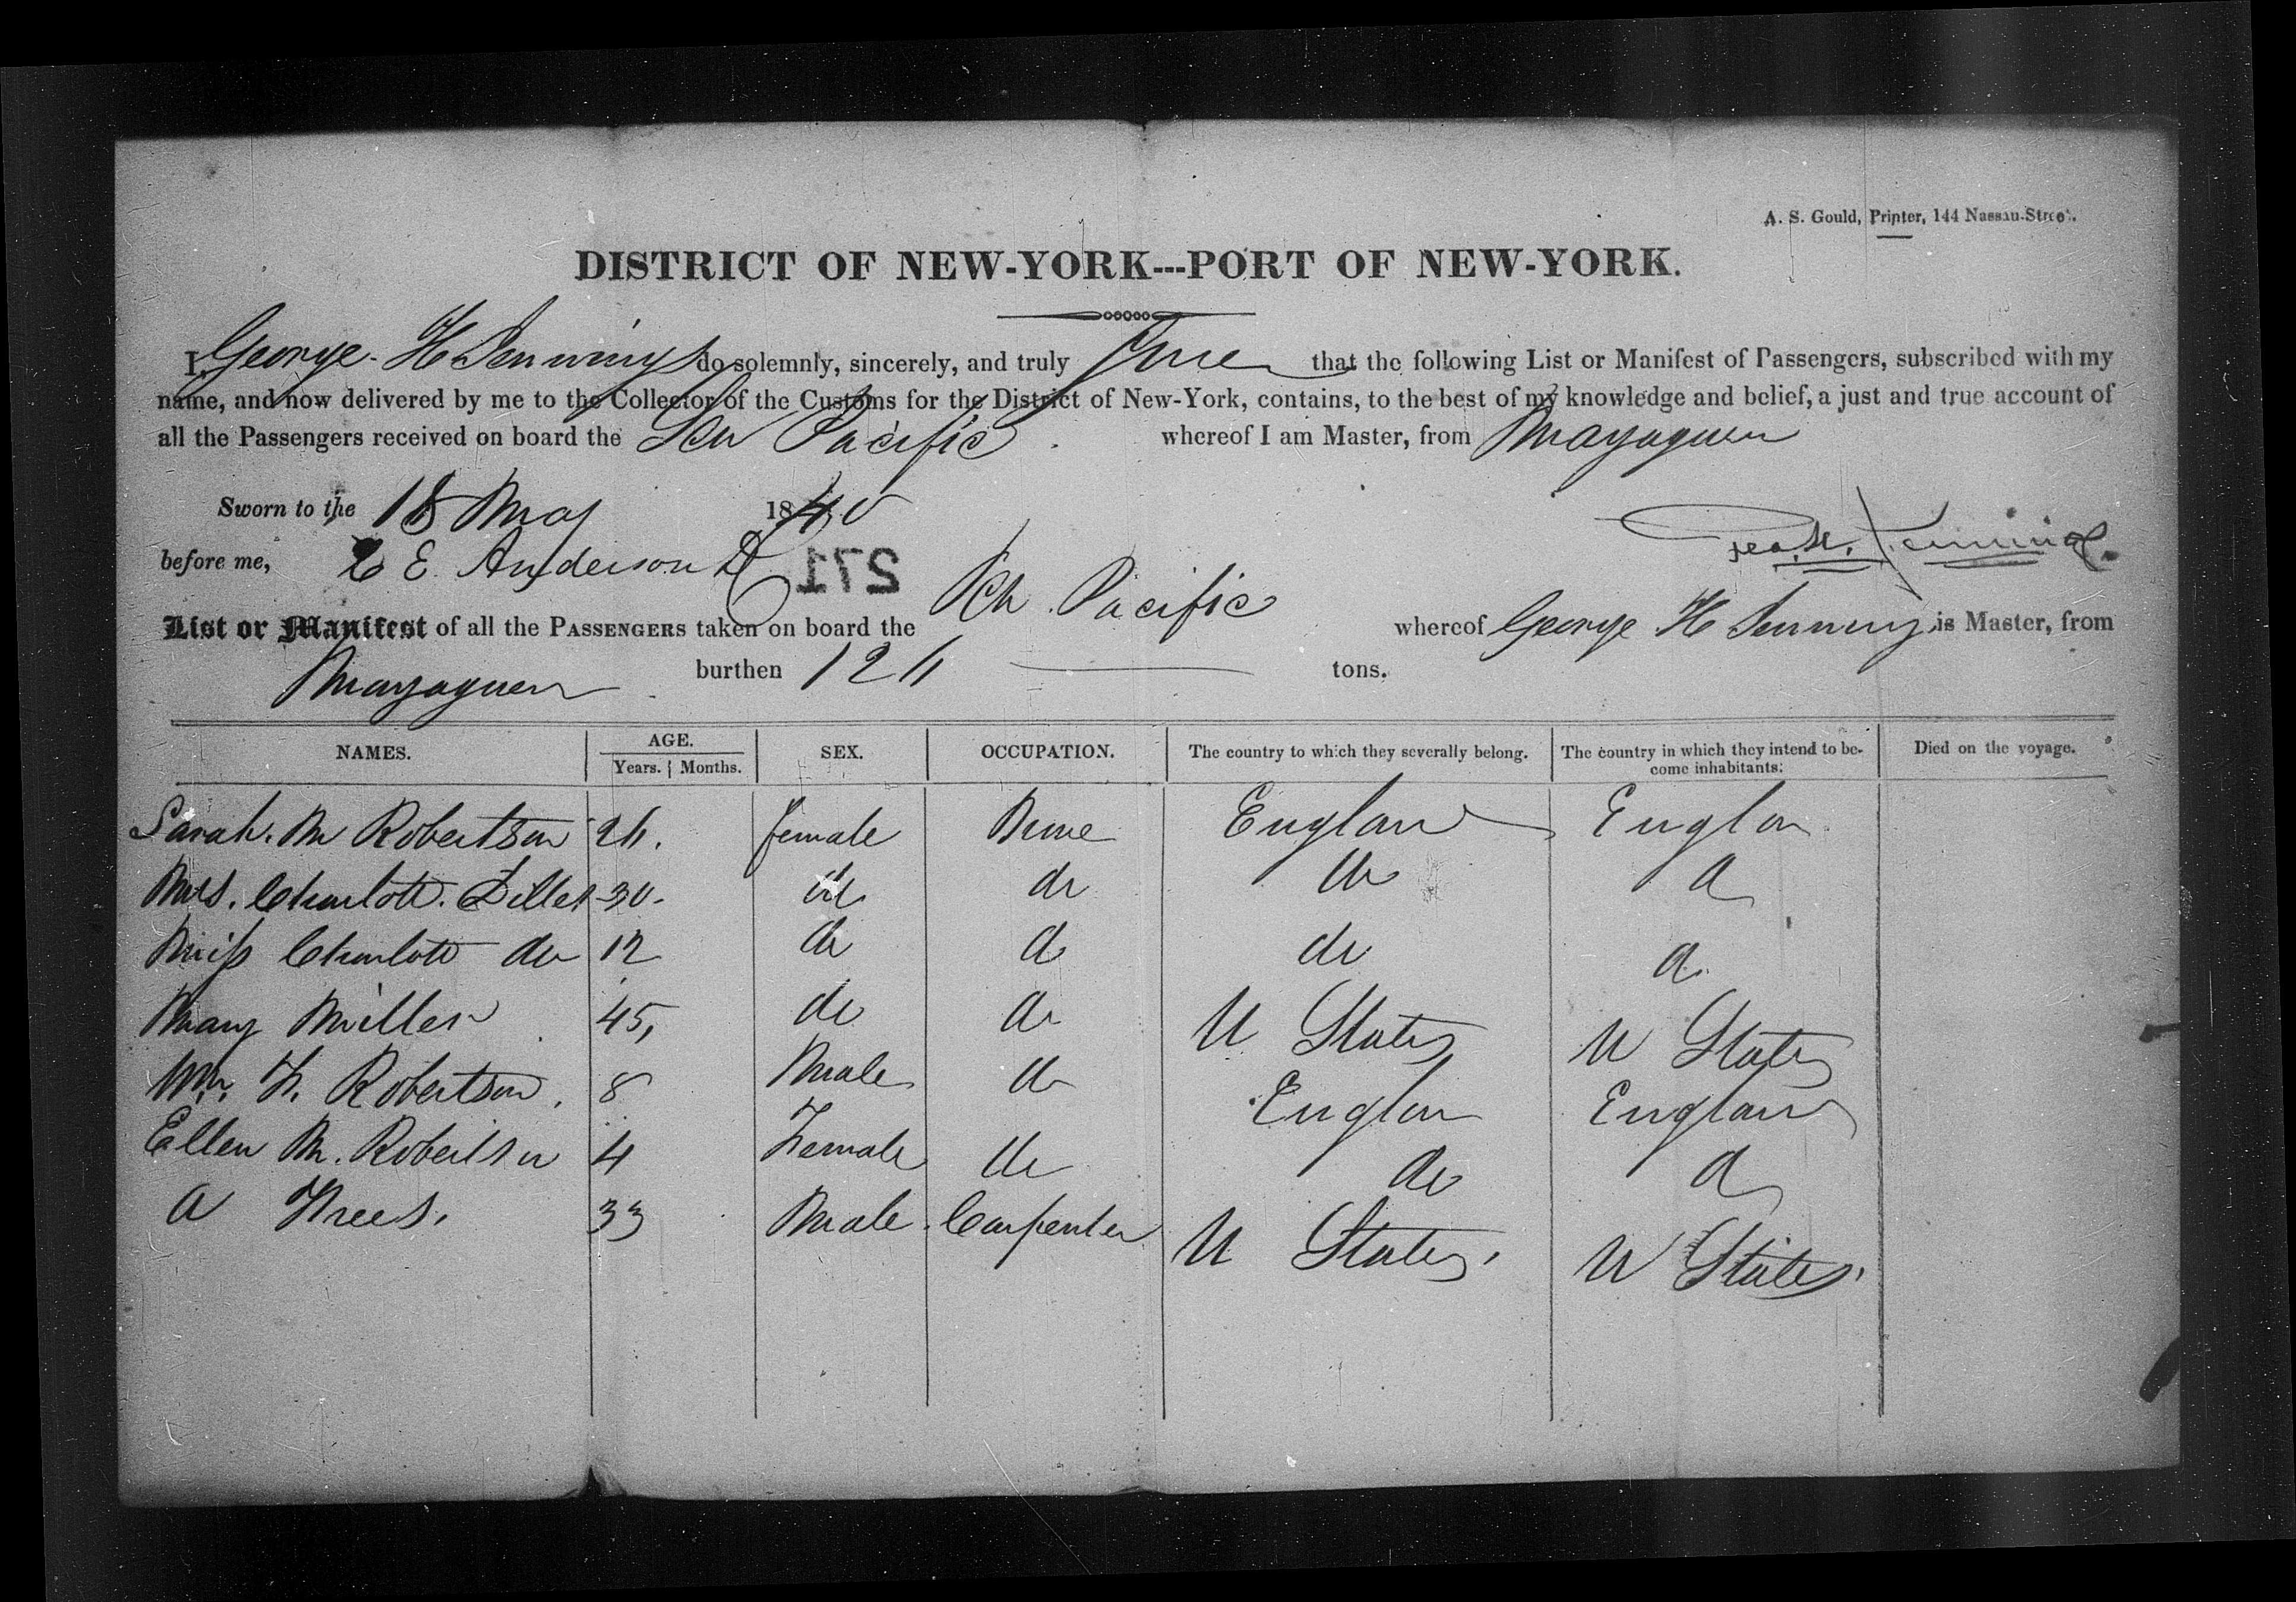 A. S. Gould, Printer, 144 Nassau-Street.
DISTRICT OF NEW-YORK---PORT OF NEW-YORK.
I, George H Jennings do solemnly, sincerely, and truly that the following List or Manifest of Passengers, subscribed with my
name, and now delivered by me to the Collector of the Customs for the District of New-York, contains, to the best of my knowledge and belief, a just and true account of
all the Passengers received on board the Sch Pacific whereof I am Master, from Mayaguez
Sworn to the 18 May 1840
Geo. H. Jennings
before me, E Anderson
271
List or Manifest of all the PASSENGERS taken on board the Sch Pacific whereof George H Jennings is Master, from
Mayaguez burthen 124 tons.
NAMES. AGE. SEX. OCCUPATION. The country to which they severally belong. The country in which they intend to be- Died on the voyage.
Years. Months. come inhabitants.
Sarah. M Robertson 24. female None England England
Mrs. Charlott 30. do do do do
Miss Charlott do 12 do do do do
Mary Miller 45, do do U States U States
Wm. H. Robertson. 8 Male do England England
Ellen M. Robertson 4 Female do do do
A 33 Male Carpenter U States. U States.